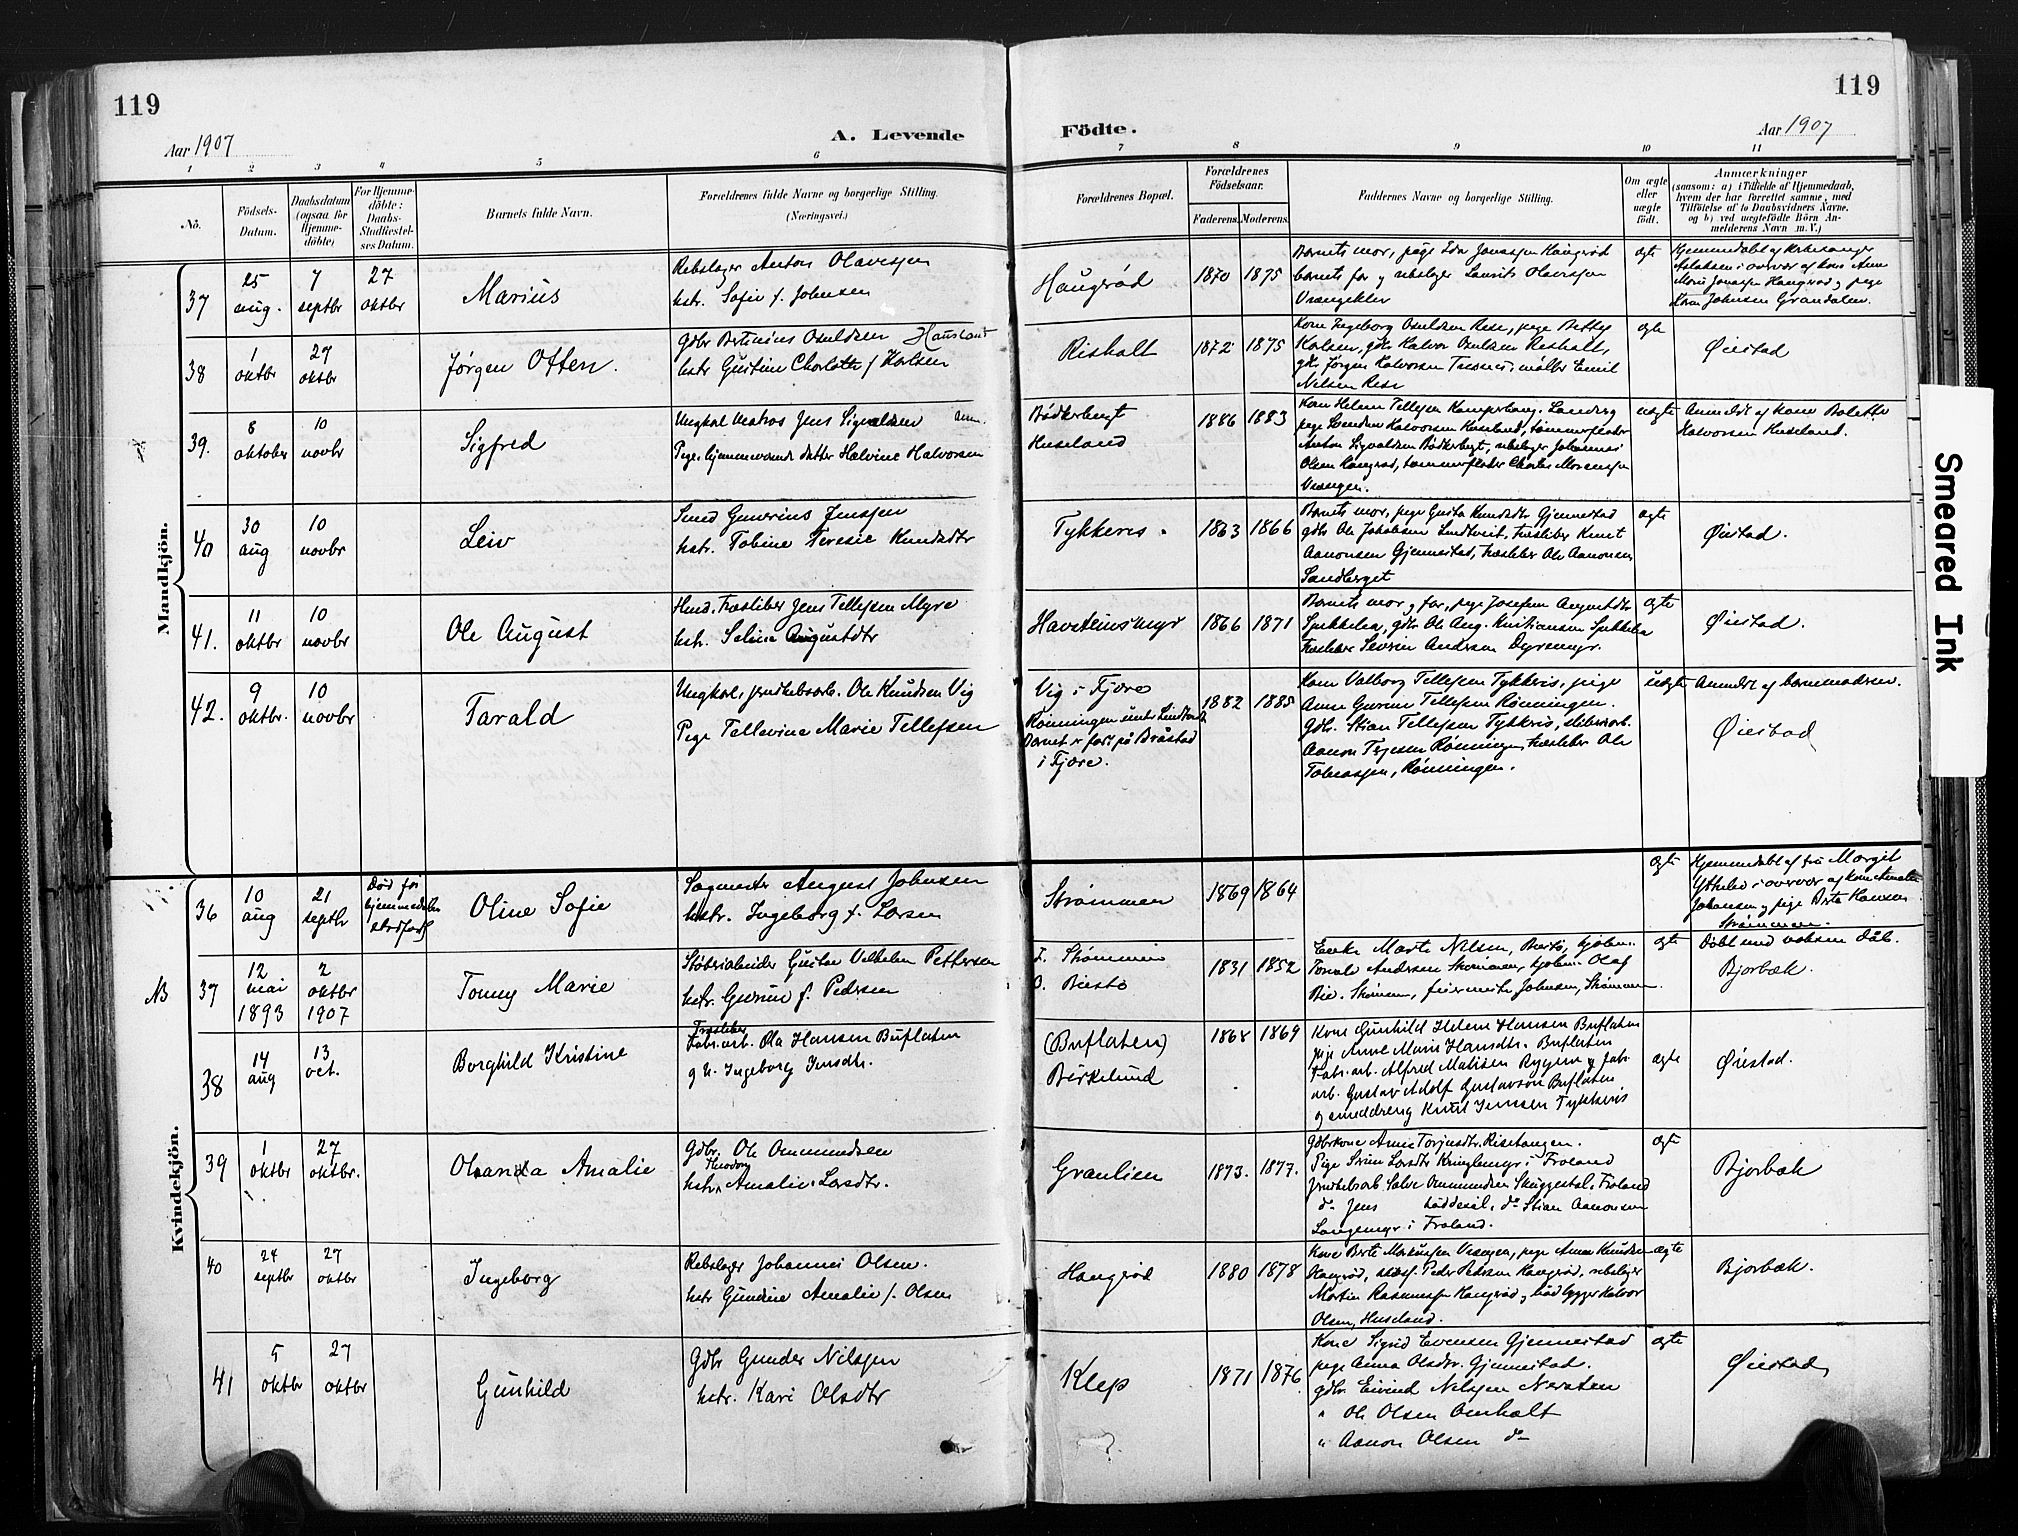 119
119
Aar 1907
A. Levende
Födte.
Aar 1907
1 2 3 4 5 6 7 8 9 10 11
No.
Födsels-
Datum.
Daabsdatum
(ogsaa for
Hjemme-
döbte)
For Hjemme-
döbte:
Daabs-
Stadfæstel-
ses Datum.
Barnets fulde Navn.
Forældrenes fulde Navne og borgerlige Stilling.
(Næringsvei.)
Forældrenes Bopæl.
Forældrenes
Födselsaar.
Faderens. Moderens.
Faddernes Navne og borgerlige Stilling.
Om ægte
eller
uægte
födt.
Anmærkninger
(saasom: a) i Tilfælde af Hjemmedaab,
hvem der har forrettet samme, med
Tilföielse af to Daabsvidners Navne,
og b) ved uægtefödte Börn An-
melderens Navn m. V.)
Mandkjön.
37
25
aug.
7
septbr
27
oktbr
Marius
Rebslager Anton Olavessen
hstr. Sofie f. Johnsen
Haugerød
1870 1875
Barnets mor, pige Eda Jonassen Haugerød
barnets far og rebslager Laurits Olavessen
Vrængekler
ægte
Hjemmedøbt af
Aslaksen i overvær af kone Anne
Marie Jonassen Haugrød og pige
Johnsen Grandalen.
38
1
oktbr
27
oktbr
Jørgen Otten.
Gdbr Bertinius Osuldsen Hausland
hstr Gustine Charlotte f Karlsen
Risholt
1872 1875
Kone Ingeborg Osuldsen Rese, pige Betty
Karlsen, gdbr Halvor Osuldsen Risholt,
gdbr Jørgen Halvorsen Tresnes, møller Emil
Nilsen Rese
ægte
Øiestad
39.
8
oktober
10
novbr
Sigfred
Ungkarl Matros Jens Sigvaldsen
Pige hjemmeværende datter Halvine Halvorsen
Bødkerbugt
Huseland
1886 1883
Kone Helene Tellefsen
pige Halvorsen Huseland, tømmerfløder
Anton Sigvaldsen Bødkerbugt, rebslager Johannes
Olsen Haugrød, tømmerfløder Charles
Vrængen.
uægte
Anmeldt af kone Bolette
Halvorsen Huseland.
40
30
aug
10
novbr
Leiv
Smed Gunerius Jenssen
hstr. Tobine Teresie Knudsdtr
Tykkeris.
1863 1866
Barnets mor, pige Gusta Knudsdtr Gjennestad
gdbr Ole Jakobsen Lindtveit, træsliber Knut
Aanonsen Gjennestad, træsliber Ole Aanonsen
Sandberget
ægte
Øiestad.
41.
11
oktbr
10
novbr
Ole August
Husm. Træsliber Jens Tellefsen Myre
hstr. Seline Augustdtr
Havsteinsmyr
1866 1871
Barnets mor og far, pige Josefine Augustdtr
Spekkelia, gdbr Ole Aug. Kristiansen Spekkelia
træsliber Severin Andersen Dyremyr.
ægte
Øiestad.
42.
9
oktbr.
10
novbr
Tarald
Ungkarl, jernbanearb. Ole Knudsen Vig
Pige Tellevine Marie Tellefsen
Vig i Fjære
Rønningen under
Barnet er født på Bråstad
i Fjære.
1882 1885
Kone Valborg Tellefsen Tykkeris, pige
Anne Gurine Tellefsen Rønningen.
Gdbr. Stian Tellefsen Tykkeris, sliberarb.
Aanon Terjesen Rønningen, træsliber Ole
Tobiassen, Rønningen.
uægte
Anmeldt af barnemoderen.
Øiestad
Kvindekjön.
36
10
aug
21
septbr
Død før
hjemmedåben
stadfæst
Oline Sofie
Sagmester August Johnsen
hstr. Ingeborg f. Larsen
Strømmen
1869 1864
ægte
Hjemmedøbt af fru Margit
i overvær af kone Amalie
Johansen og pige Berta Hansen
Strømmen.
NB
37
12
mai
1893
2
oktbr
1907
Tonny Marie
Støberiarbeider Gustav Vilhelm Pettersen
hstr. Gurine f. Pedersen
F. Strømmen
O. Biestø
1831 1852
Enke Marte Nilsen, Biestø,
Andersen Strømmen, Olaf
Bie. Strømmen, Johnsen, Strømmen.
ægte
Døbt med voksen dåb.
Bjorbæk.
38
14
aug
13
oct.
Borghild Kristine
Træsliber
Fabr.arb. Ola Hansen Buflaten
g h. Ingeborg Jensdtr.
(Buflaten)
Birkelund
1864 1869
Kone Gunhild Helene Hansen Buflaten
Pige Anne Marie Hansdtr. Buflaten
Fabr.arb. Alfred Matisen Ryggen og fabr.
arb. Gustav Adolf Gustavson Buflaten
og smeddreng Knut Jenssen Tykkeris
ægte
Øiestad.
39
1
oktbr
27
oktbr.
Olsanda Amalie
Gdbr. Ole Ommundsen
Theodora
hstr. Amalie Larsdtr.
Graulien
1873. 1877.
Gdbrkone Anne Torjusdtr. Risetangen.
Pige Sirin Larsdtr Kringlemyr i Froland
Jernbanearb Salve Ommundsen Skuggestøl, Froland
do Jens Løddesøl, do Stian Aanonsen
Langemyr i Froland.
ægte
Bjorbæk
40
24
septbr
27
oktbr
Ingeborg
Rebslager Johannes Olsen.
hstr Gundine Amalie f. Olsen
Haugrød
1880 1878
Kone Berte Markussen Vrængen, pige Anne Knudsen
Haugrød, Peder Pedersen Haugrød, rebslager
Martin Rasmussen Haugrød og bådbygger Halvor
Olsen, Huseland.
ægte
Bjorbæk.
41
5
oktbr
27
oktbr
Gunhild
Gdbr Gunder Nilssen
hstr. Kari Olsdtr
Klep
1871 1876
Kone Sigrid Evensen Gjennestad
pige Anna Olsdtr. Gjennestad.
gdbr. Eivind Nilssen Nersten
" Ole Olsen Omholt
" Aanon Olsen do
ægte
Øiestad
Smeared Ink